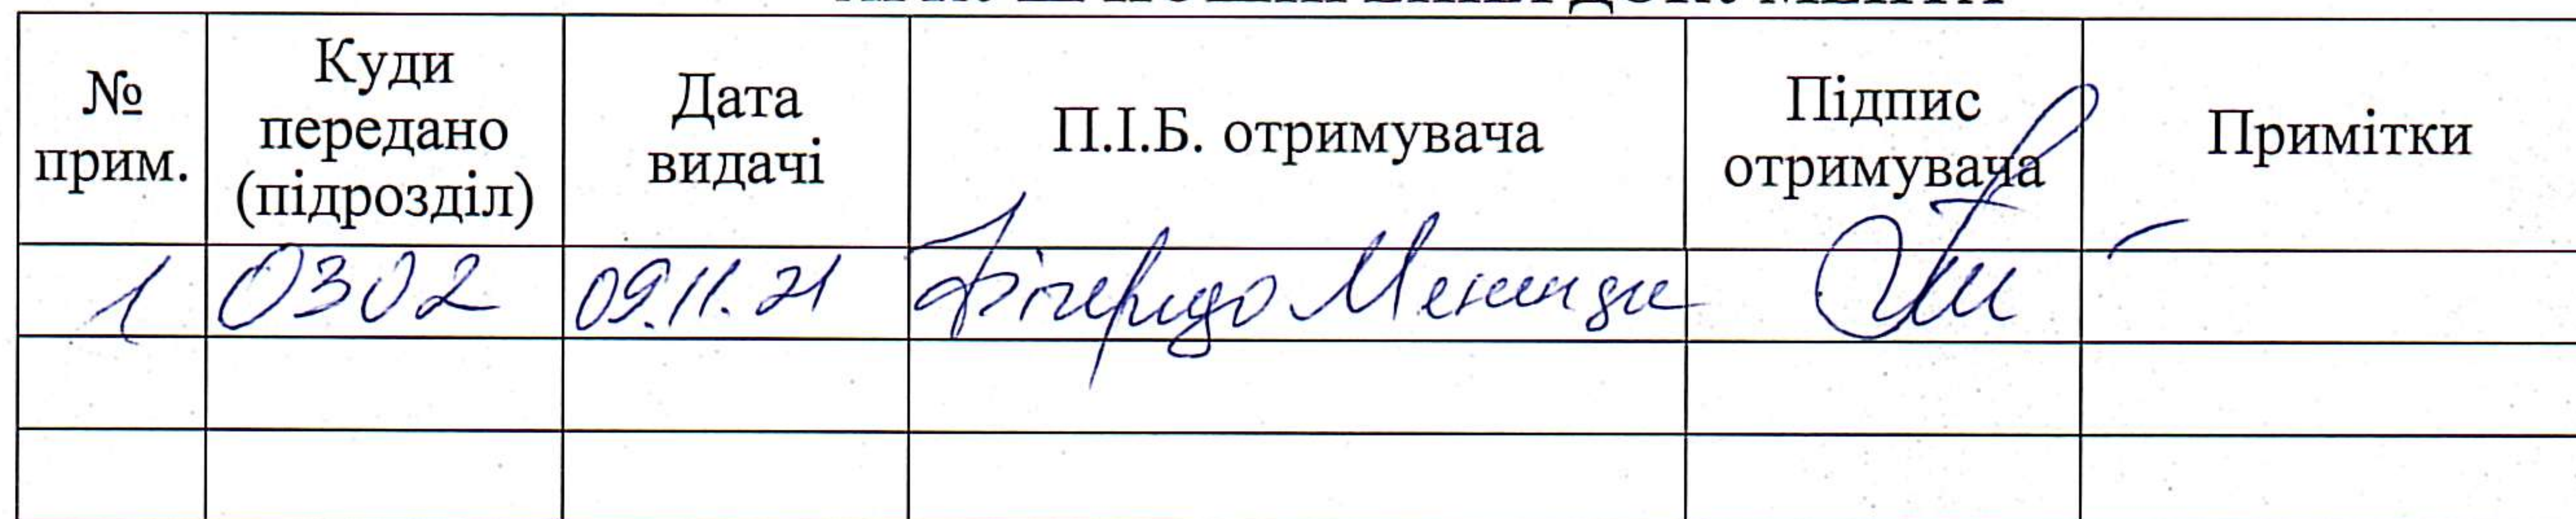 № прим. Куди передано (підрозділ) Дата видачі П.І.Б. отримувача Підпис отримувача Примітки
1 0302 09.11.21